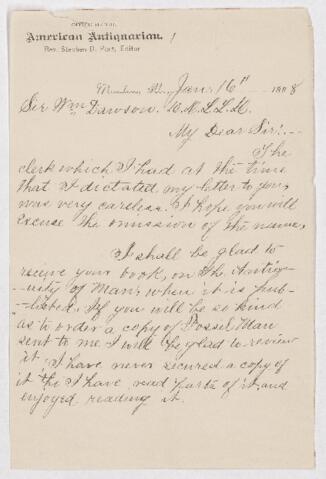 OFFICE OF THE
American Antiquarian.
Rev. Stephen D. Peet, Editor
Mendon, Ill., Jan. 16" 1888
Sir Wm Dawson. L.L.D.
My Dear Sir:-
The
clerk which I had at the time
that I dictated my letter to you,
was very careless. I hope you will
Excuse the omission of the name.
I shall be glad to
receive your book, on the Antiq-
uity of Man, when it is pub-
lished. If you will be so kind
as to order a copy of Fossil Man
sent to me I will be glad to review
it. I have never secured a copy of
it tho I have read parts of it, and
enjoyed reading it.